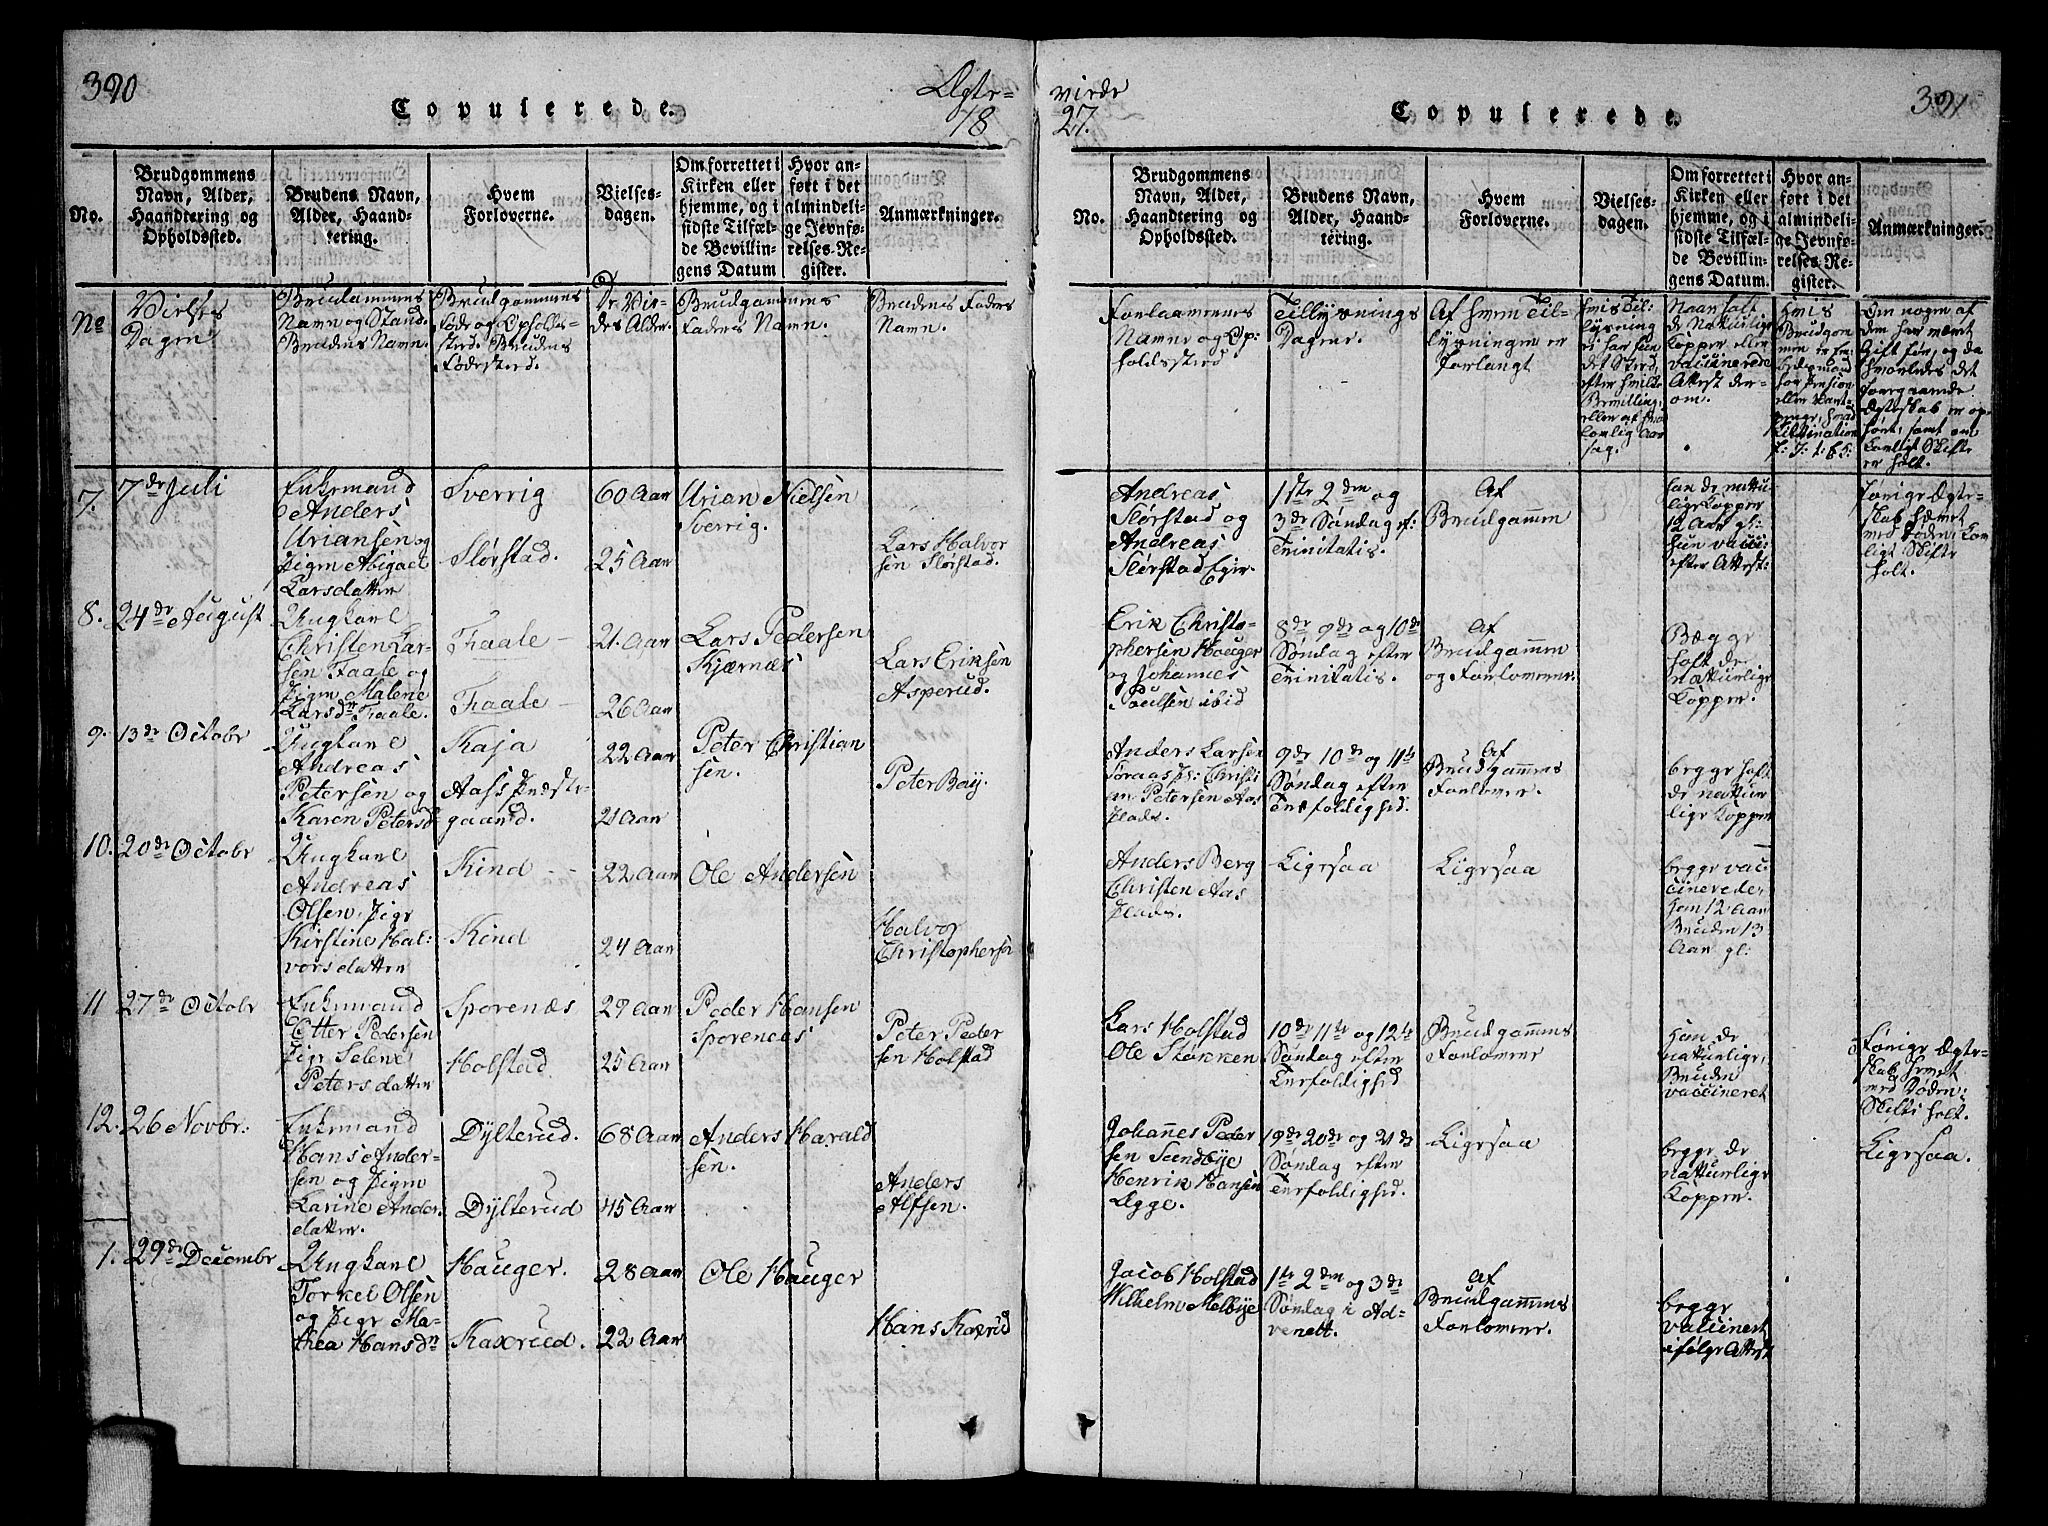 390
Copulerede.
Ægte-
18
No.
Brudgommens
Navn, Alder,
Haandtering og
Opholdssted.
Brudens Navn,
Alder, Haand-
tering.
Hvem
Forloverne.
Vielses-
dagen.
Om forrettet i
Kirken eller
hjemme, og i
sidste Tilfæl-
de Bevillin-
gens Datum
Hvor an-
ført i det
almindeli-
ge Jevnfø-
relses-Re-
gister.
Anmærkninger.
No
Vielses
Dagen
Brudgommens
Navn og Stand.
Brudens Navn.
Brudgommens
Føde og Opholds-
sted. Brudens
Fødested.
De Vie-
des Alder.
Brudgommens
Faders Navn.
Brudens Faders
Navn.
7.
7de Juli
Enkemand
Anders
Uriansen og
Pigen Abigael
Larsdatter
Sverrig
Slørstad.
60 Aar
25 Aar
Urian Nielsen
Sverrig.
Lars Halvor
sen Slørstad.
8.
24de August
Ungkarl
Christen Lar-
sen Faale og
Pigen Malene
Larsdr Faale.
Faale
Faale
21 Aar
26 Aar
Lars Pedersen
Kjærnæs
Lars Eriksen
Asperud.
9.
13de Octobr
Ungkarl
Andreas
Petersen og
Karen Petersd
Kaja
Aas Præste-
gaard.
22 Aar
21 Aar
Peter Christian
sen.
Peter Boij.
10.
20de Octobr
Ungkarl
Andreas
Olsen, Pige
Kirstine Hal-
vorsdatter
Kind
Kind
22 Aar
24 Aar
Ole Andersen
Halvor
Christophersen
11
27de Octobr
Enkemand
Otter Pedersen
Pige Selene
Petersdatter
Sporenæs
Holstad
29 Aar
25 Aar
Peder Hansen
Sporenæs
Peter Peder
sen Holstad
12.
26 Novbr:
Enkemand
Hans Ander-
sen og Pigen
Larine Anders
datter.
Dylterud.
Dylterud
68 Aar
45 Aar
Anders Harald
sen.
Anders
Alfsen.
1.
29de Decembr
Ungkarl
Torkel Olsen
og Pige Ma-
thea Hansdn
Hauger.
Kaxrud.
28 Aar
22 Aar
Ole Hauger
Hans Kaxrud
391
viede
27.
Copulerede.
No.
Brudgommens
Navn, Alder,
Haandtering og
Opholdssted.
Brudens Navn,
Alder, Haand-
tering.
Hvem
Forloverne.
Vielses-
dagen.
Om forrettet i
Kirken eller
hjemme, og i
sidste Tilfæl-
de Bevillin-
gens Datum.
Hvor an-
ført i det
almindeli-
ge Jevnfø-
relses-Re-
gister.
Anmærkninger.
Forlovernes
Navne og Op-
holdssted
Tillysnings
Dagene.
Af hvem Til-
lysningen er
forlangt
Hvis Til-
lysning
ei har fun
det Sted,
efter hvilken
Bevilling,
eller af hvad
lovlig Aar
sag.
Naar havt
de Naturlige
Kopper eller
vaccinerede
Attest der-
om.
Hvis
Brudgom
men er En-
kemand
Om nogen af
dem har været
Gift før, og da
hvorledes det
foregaaende
Ægteskab er op-
hørt, samt om
lovligt Skifte
er holt.
Andreas
Slørstad og
Andreas
Slørstad Eger
1ste 2den og
3de Søndag ef:
Trinitatis.
Af
Brudgommen
han de nattu-
lige Kopper
12 Aar gl:
hun vacci-
efter Attest:
forige Ægte-
skab hævet
med Døden, Lov
ligt Skifte
holt.
Erik Christo-
phersen Hauger
og Johannes
Poulsen ibid
8de 9de og 10de
Søndag efter
Trinitatis.
Af
Brudgommen
og Forloverne.
Begge
havt de
nattulige
Kopper.
Anders Larsen
Christi
an Petersen Aas
Plads.
9de 10de og 11te
Søndag efter
Trefoldighed.
Af
Brudgommens
Forlover.
begge havt
de nattur
lige Kopper
Anders Berg
Christen Aas
Plads.
Ligesaa
Ligesaa
begge vac-
cinerede,
han 12 Aar
Bruden 13
Aar gl:
Lars Holstad
Ole Støkken
10de 11te og 12te
Søndag efter
Trefoldighed
Brudgommens
Forlover
han de
nattulige,
Bruden
vaccineret
forige Ægte-
skab hævet
med Døden
Skifte holt.
Johannes Peder
sen Sundbye
Henrik Hansen
Egge.
19de 20de og 21de
Søndag efter
Trefoldighed.
Ligesaa
begge de
nattulige
Kopper.
Ligesaa.
Jacob Holstad
Wilhelm Melbye
1ste 2den og 3de
Søndag i Ad-
venett.
Af
Brudgommens
Forlover.
begge
vaccineret
ifølge Attest